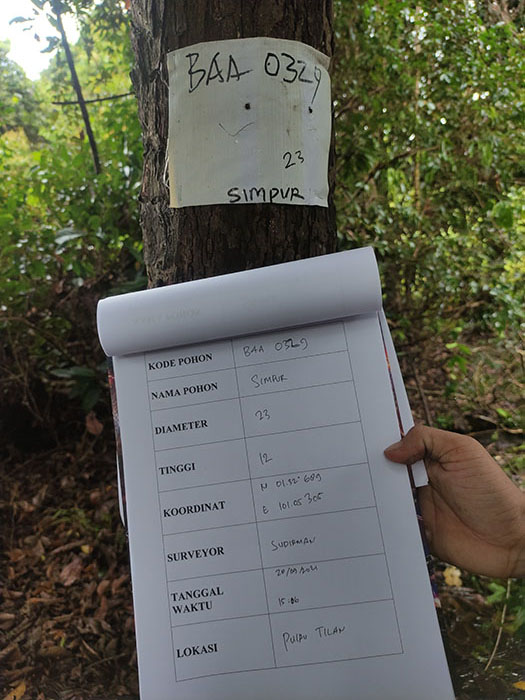 BAA 0329
23
SIMPUR
KODE POHON BAA 0329
NAMA POHON SIMPUR
DIAMETER 23
TINGGI 12
KOORDINAT N 01.52' 689
E 101 05 305
SURVEYOR SUDIRMAN
TANGGAL 20/09/2021
WAKTU 15:06
LOKASI PULAU TILAN